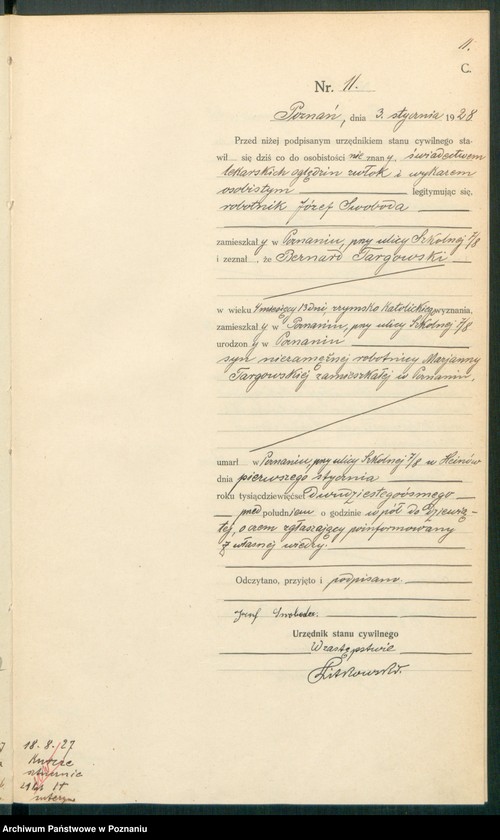 11.
C.
Nr. 11.
Poznań, dnia 3. stycznia 1928
Przed niżej podpisanym urzędnikiem stanu cywilnego sta-
wił się dziś co do osobistości nie znany, świadectwem
lekarskich oględzin zwłok i wykazem
osobistym legitymując się,
robotnik Józef Swoboda
zamieszkały w Poznaniu, przy ulicy Szkolnej 7/8
i zeznał, że Bernard Targowski
w wieku 4 miesięcy 13 dni, rzymsko katolickiego wyznania,
zamieszkały w Poznaniu, przy ulicy Szkolnej 7/8
urodzony w Poznaniu
syn niezamężnej robotnicy Marjanny
Targowskiej zamieszkałej w Poznaniu,
umarł w Poznaniu, przy ulicy Szkolnej 7/8 u
dnia pierwszego stycznia
roku tysiącdziewięćset dwudziestegoósmego
przed południem o godzinie wpół do dziewią-
tej, o czem zgłaszający poinformowany
z własnej wiedzy.
Odczytano, przyjęto i podpisano
Józef Swoboda.
Urzędnik stanu cywilnego
W zastępstwie
18. 8. 27
Archiwum Państwowe w Poznaniu